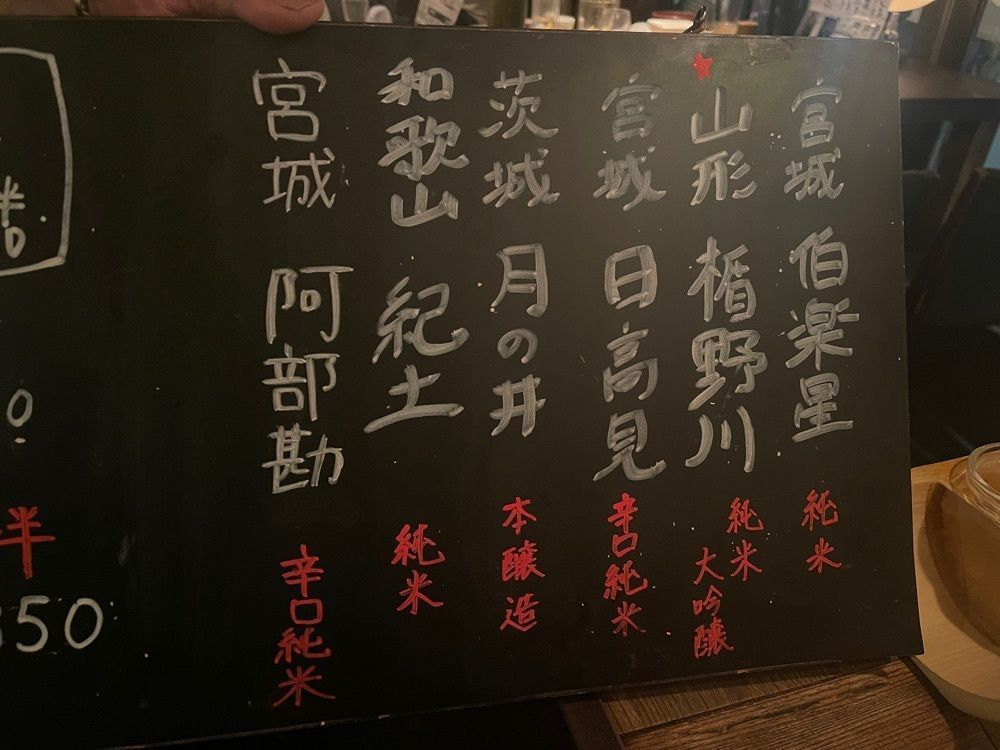 宮城 伯楽星 純米
山形 楯野川 純米大吟醸
宮城 日高見 辛口純米
茨城 月の井 本醸造
和歌山 紀土 純米
宮城 阿部勘 辛口純米
半
0
半
350